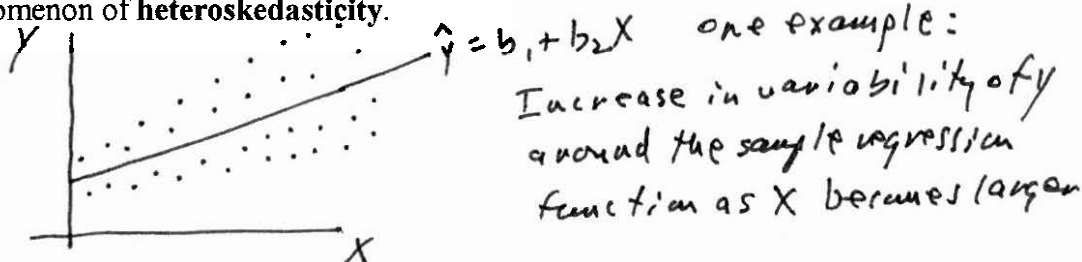 omenon of heteroskedasticity.
Y
ŷ = b₁ + b₂X one example:
Increase in variability of y
around the sample regression
function as X becomes larger
X